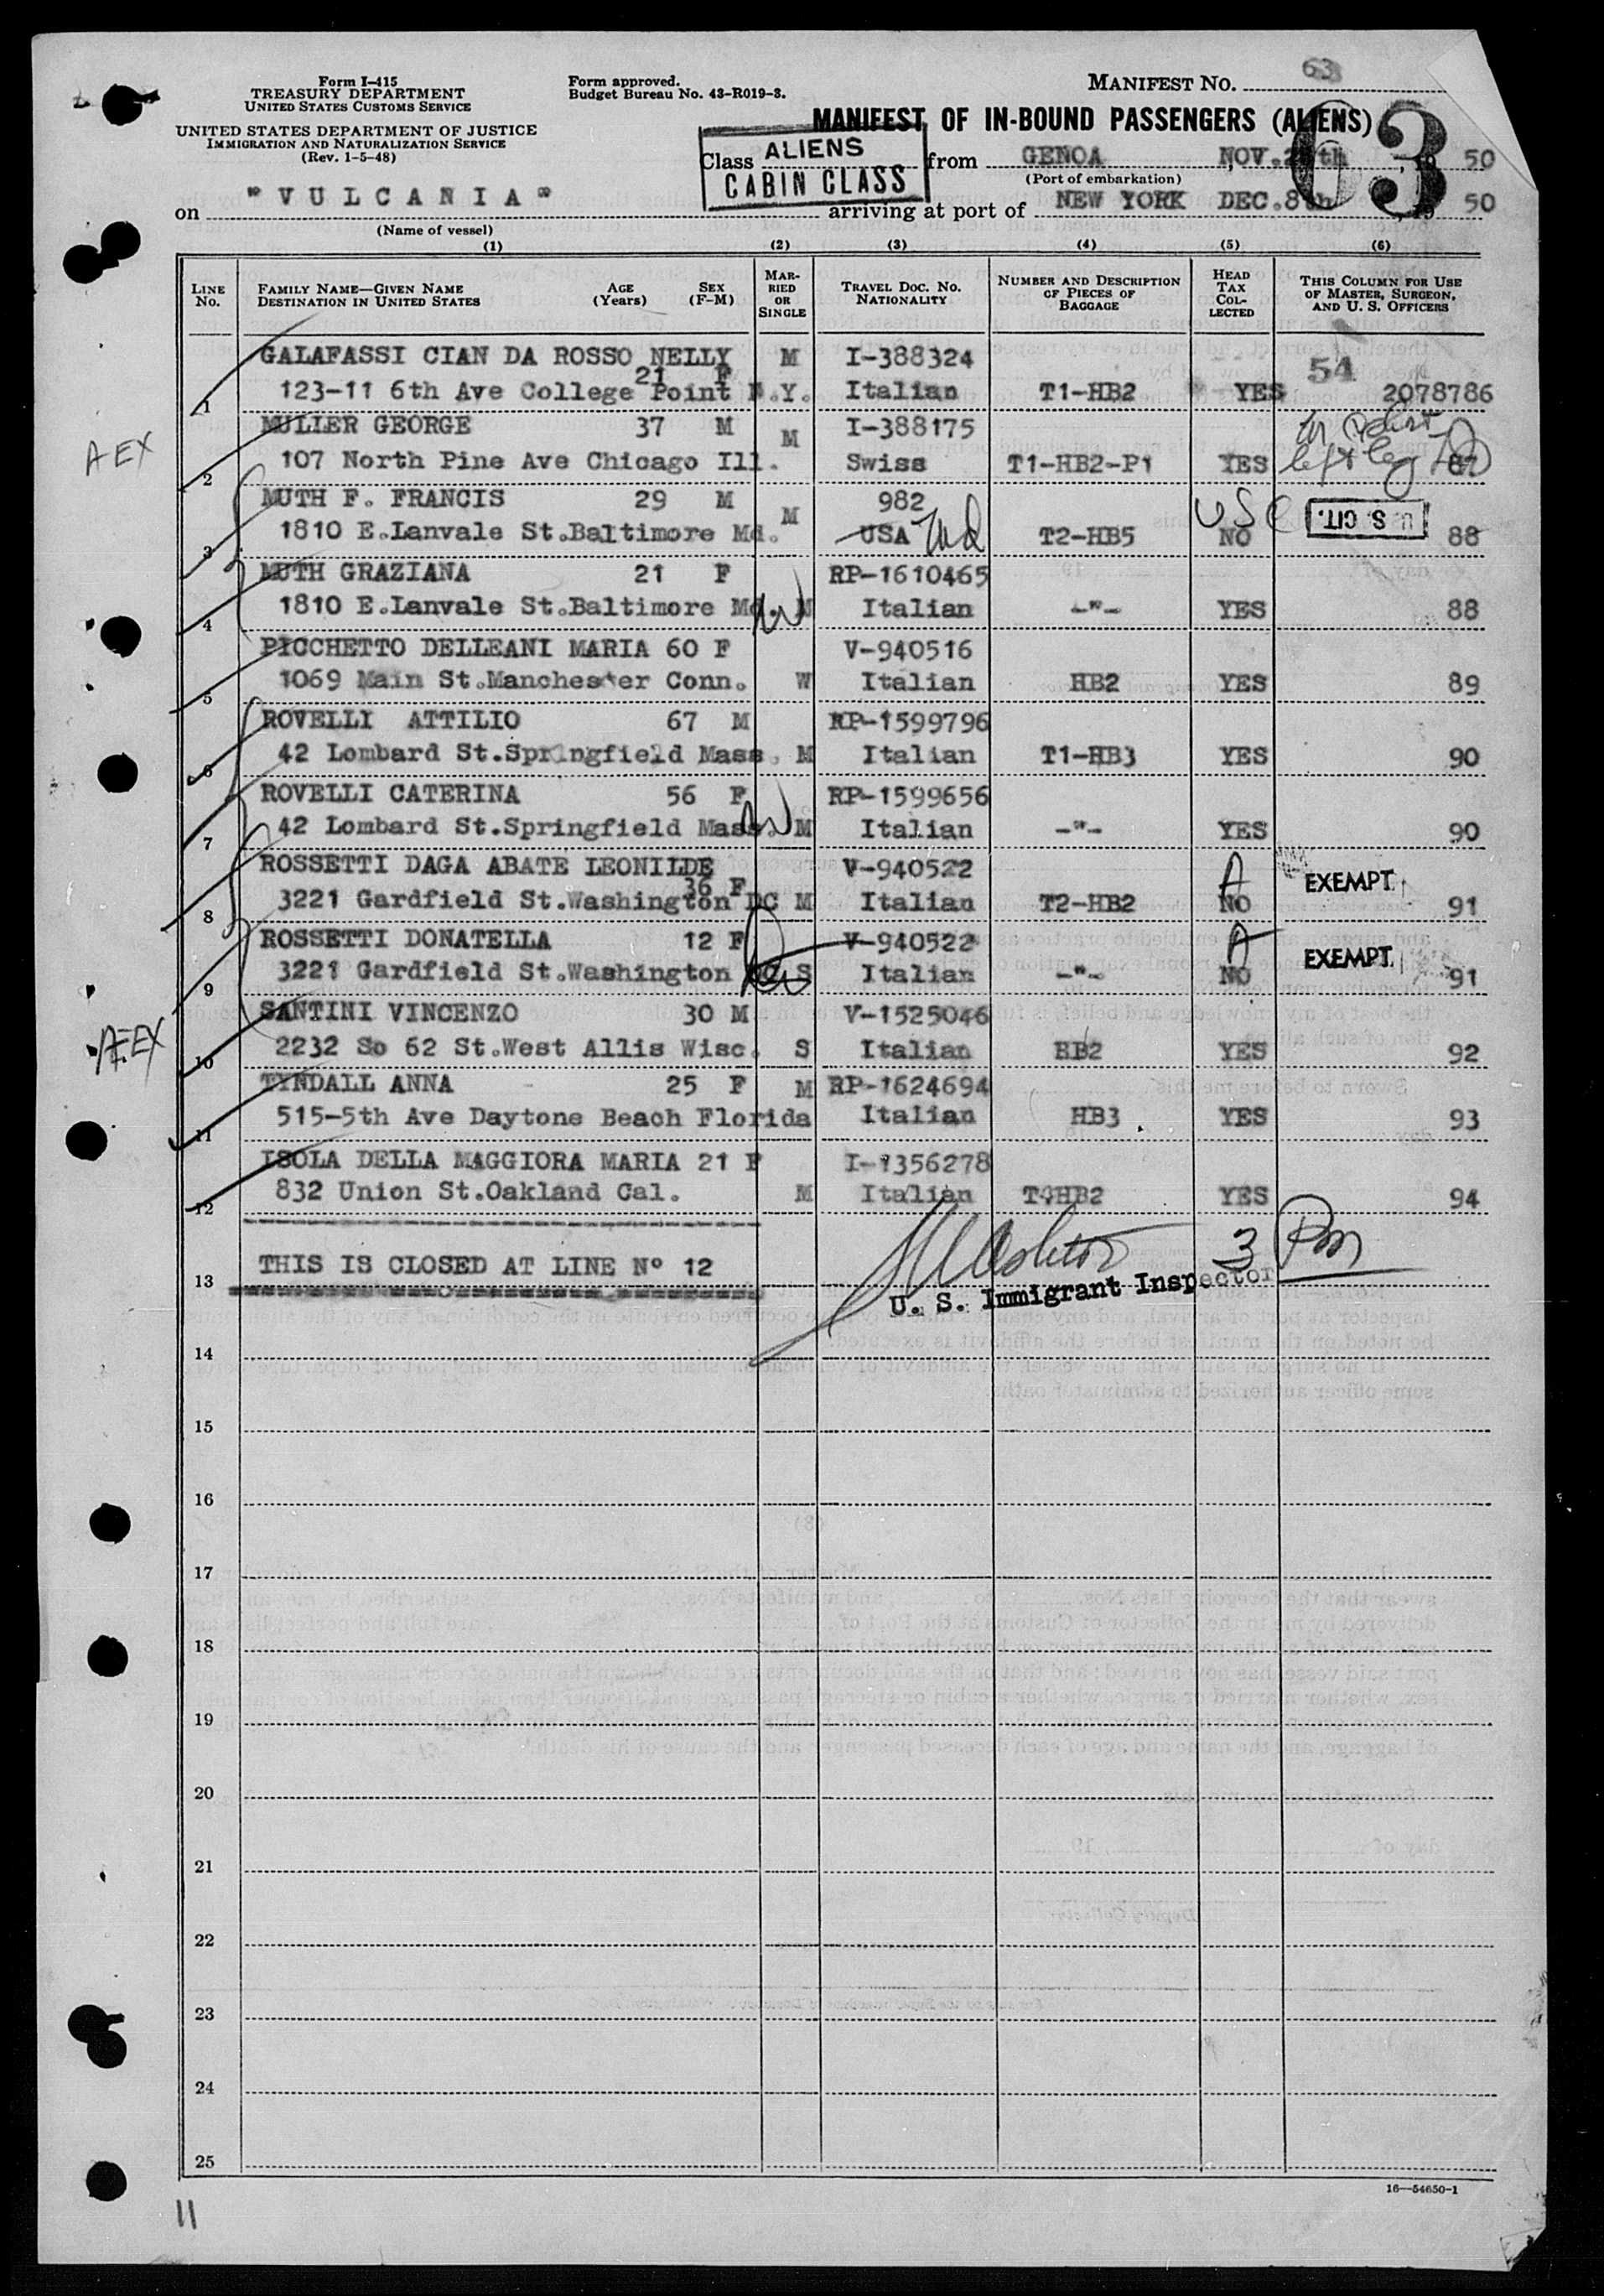 Form I-415
TREASURY DEPARTMENT
UNITED STATES CUSTOMS SERVICE
UNITED STATES DEPARTMENT OF JUSTICE
IMMIGRATION AND NATURALIZATION SERVICE
(Rev. 1-5-48)
Form approved.
Budget Bureau No. 43-R019-3.
MANIFEST NO. 63
63
MANIFEST OF IN-BOUND PASSENGERS (ALIENS)
Class ALIENS CABIN CLASS from GENOA NOV. 50
(Port of embarkation)
on "VULCANIA" arriving at port of NEW YORK DEC.8th, 19 50
(Name of vessel)
(1) (2) (3) (4) (5) (6)
LINE NO. FAMILY NAME—GIVEN NAME DESTINATION IN UNITED STATES AGE (YEARS) SEX (F-M) MARRIED OR SINGLE TRAVEL DOC. NO. NATIONALITY NUMBER AND DESCRIPTION OF PIECES OF BAGGAGE HEAD TAX COLLECTED THIS COLUMN FOR USE OF MASTER, SURGEON, AND U. S. OFFICERS
GALAFASSI CIAN DA ROSSO NELLY 21 F M I-388324 54
1 123-11 6th Ave College Point N.Y. Italian T1-HB2 YES 2078786
AEX MULLER GEORGE 37 M M I-388175
2 107 North Pine Ave Chicago Ill. Swiss T1-HB2-P1 YES left leg 87
MUTH F. FRANCIS 29 M M 982 USC U.S. CIT.
3 1810 E.Lanvale St.Baltimore Md. USA T2-HB5 NO 88
MUTH GRAZIANA 21 F RP-1610465
4 1810 E.Lanvale St.Baltimore Md. M Italian -"- YES 88
PICCHETTO DELLEANI MARIA 60 F V-940516
5 1069 Main St.Manchester Conn. W Italian HB2 YES 89
ROVELLI ATTILIO 67 M RP-1599796
6 42 Lombard St.Springfield Mass. M Italian T1-HB3 YES 90
ROVELLI CATERINA 56 F RP-1599656
7 42 Lombard St.Springfield Mass. M Italian -"- YES 90
ROSSETTI DAGA ABATE LEONILDE 36 F V-940522 A EXEMPT
8 3221 Gardfield St.Washington DC M Italian T2-HB2 NO 91
ROSSETTI DONATELLA 12 F V-940522 A EXEMPT
9 3221 Gardfield St.Washington DC S Italian -"- NO 91
AEX SANTINI VINCENZO 30 M V-1525046
10 2232 So 62 St.West Allis Wisc. S Italian HB2 YES 92
TYNDALL ANNA 25 F M RP-1624694
11 515-5th Ave Daytone Beach Florida Italian HB3 YES 93
ISOLA DELLA MAGGIORA MARIA 21 F I-1356278
12 832 Union St.Oakland Cal. M Italian T4HB2 YES 94
3 Pm
13 THIS IS CLOSED AT LINE Nº 12
U. S. Immigrant Inspector
14
15
16
17
18
19
20
21
22
23
24
25
16—54650-1
11